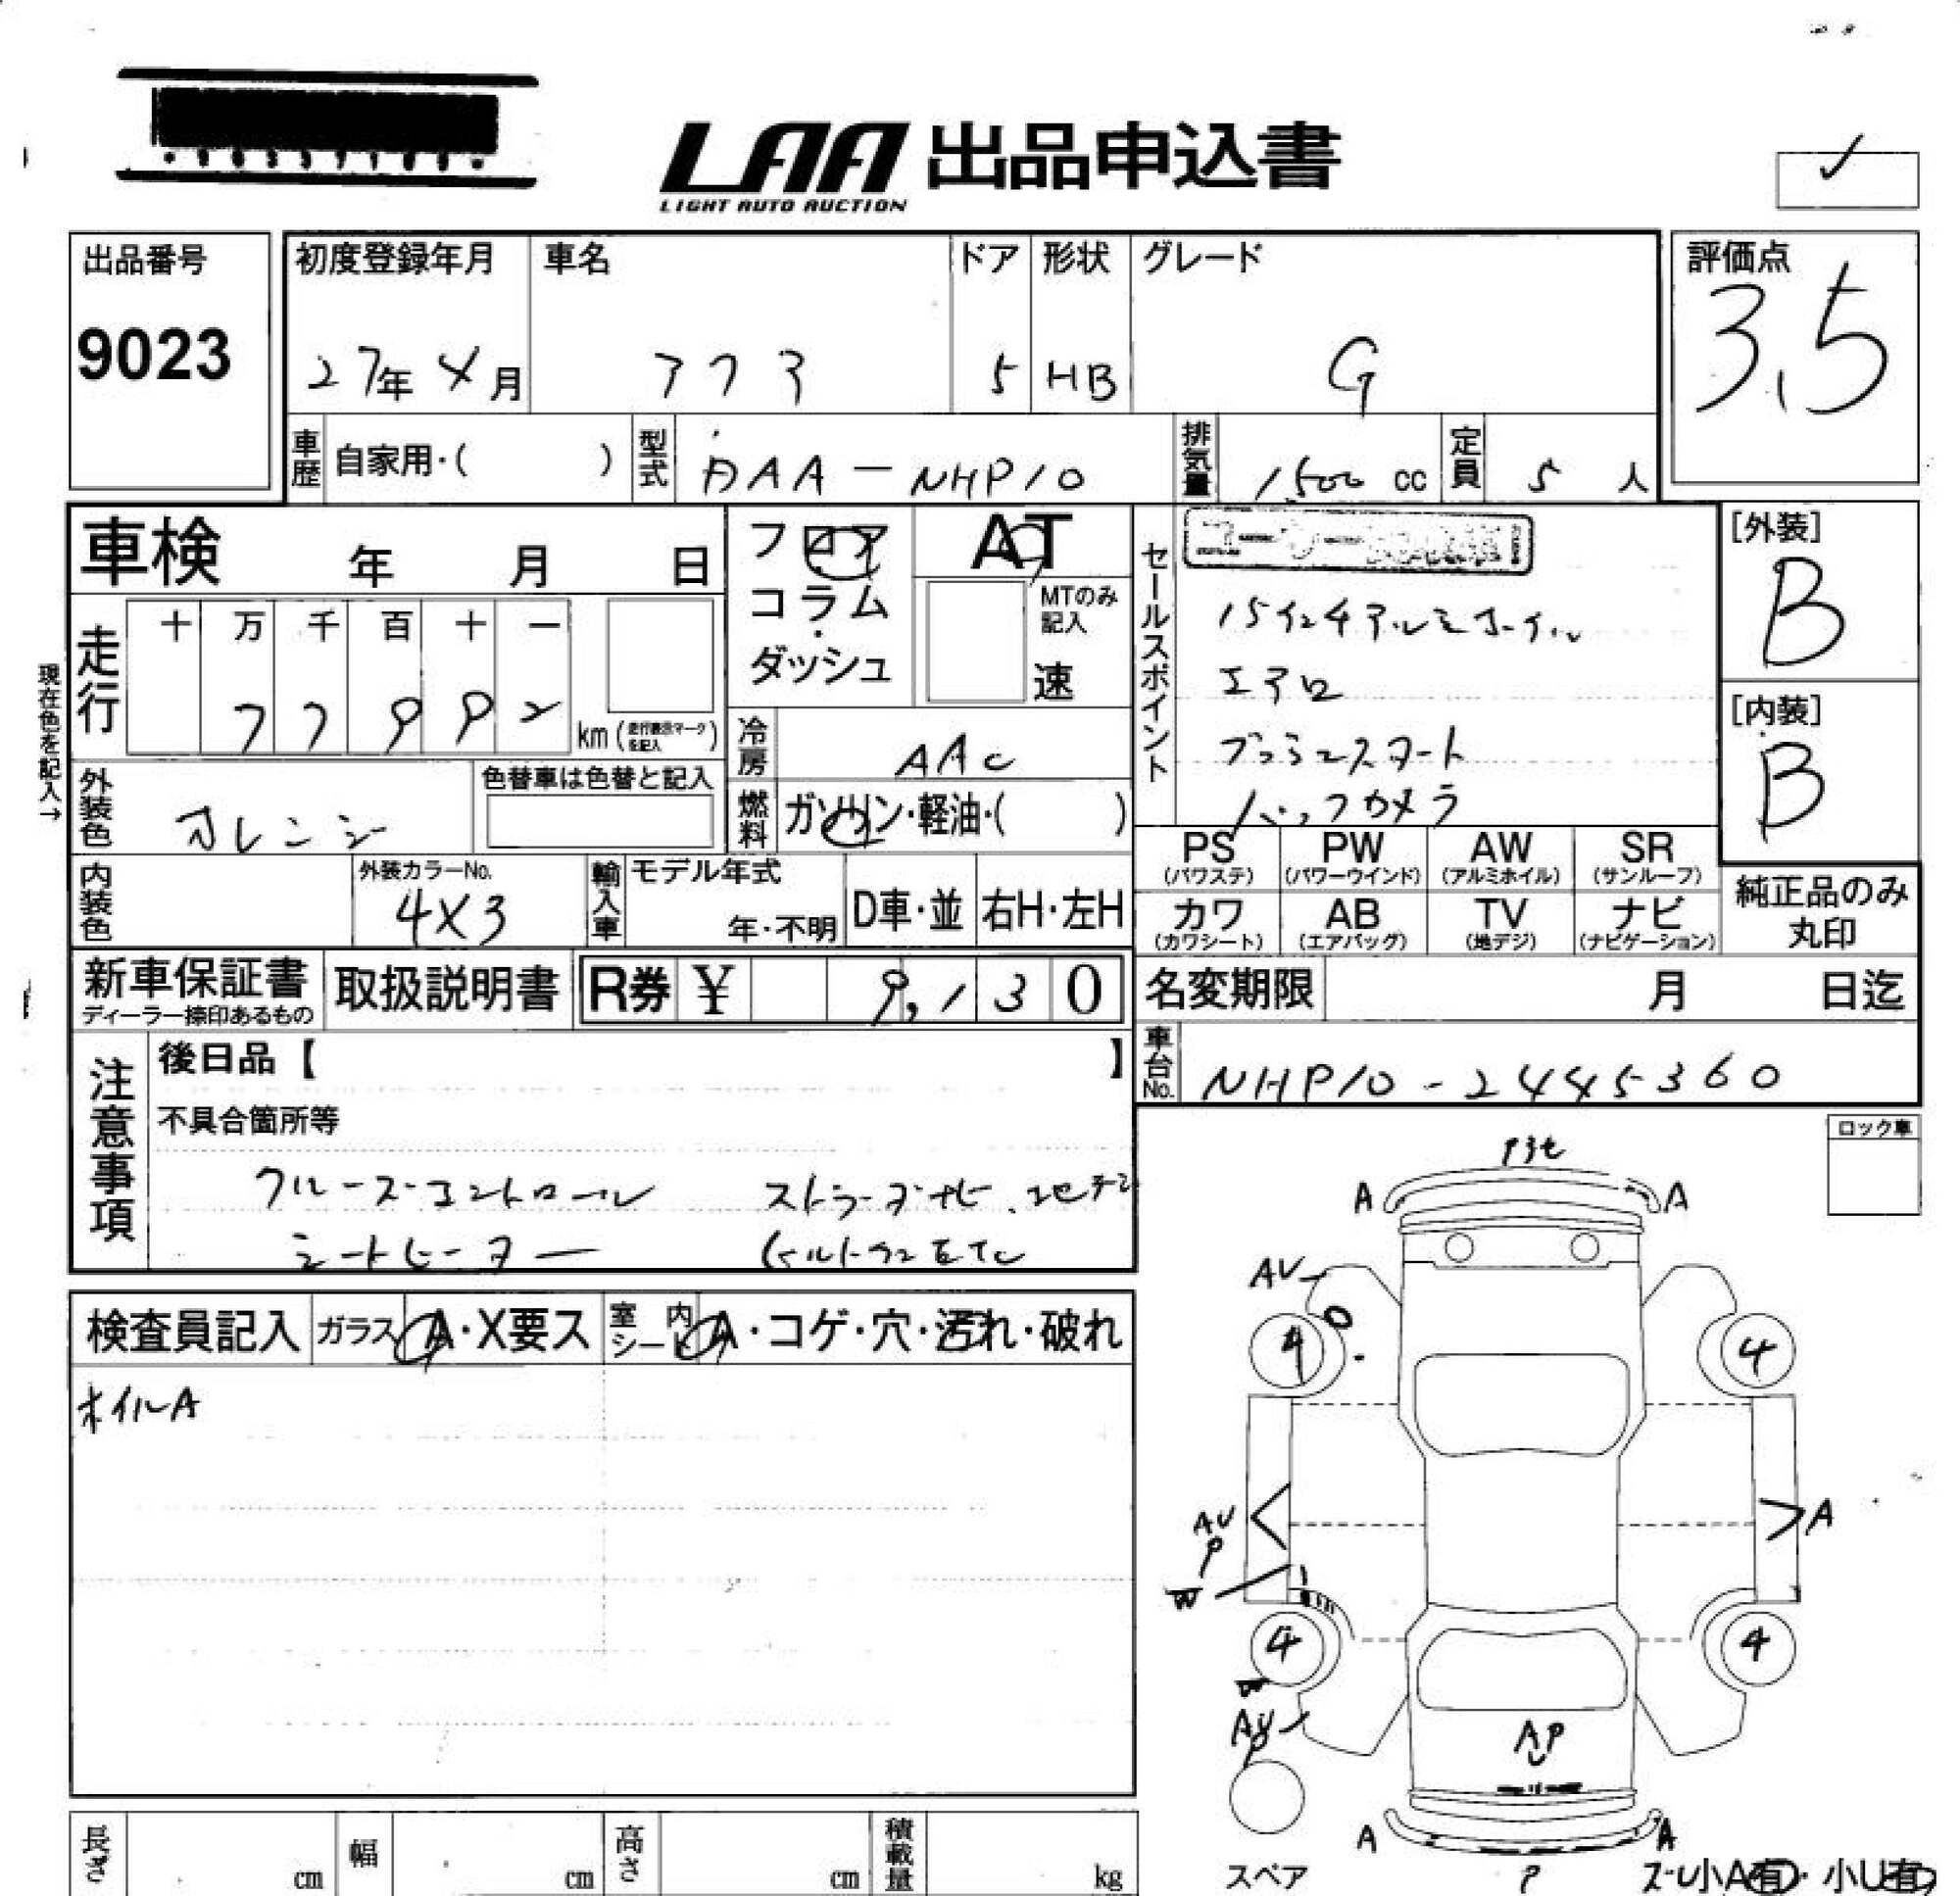 LAA 出品申込書
LIGHT AUTO AUCTION
出品番号
9023
初度登録年月
27年4月
車名
アクア
ドア
5
形状
HB
グレード
G
評価点
3.5
車歴 自家用・( )
型式 DAA-NHP10
排気量 1500 cc
定員 5 人
車検 年 月 日
フロア・コラム・ダッシュ
AT
MTのみ記入
速
セールスポイント
15インチアルミホイル
エアロ
プッシュスタート
バックカメラ
[外装]
B
[内装]
B
現在色を記入→
走行 十 万 千 百 十 一
77992 km (走行表示マークを記入)
冷房 AAC
外装色 オレンジ
色替車は色替と記入
燃料 ガソリン・軽油・( )
内装色
外装カラーNo.
4X3
輸入車 モデル年式
年・不明
D車・並
右H・左H
PS (パワステ)
PW (パワーウインド)
AW (アルミホイル)
SR (サンルーフ)
カワ (カワシート)
AB (エアバッグ)
TV (地デジ)
ナビ (ナビゲーション)
純正品のみ丸印
新車保証書
ディーラー捺印あるもの
取扱説明書
R券 ¥ 9,130
名変期限 月 日迄
車台No. NHP10-2445360
注意事項
後日品【 】
不具合箇所等
クルーズコントロール
シートヒーター
ETC
ロック車
検査員記入
ガラス A・X要ス
室内シート A・コゲ・穴・汚れ・破れ
ホイルA
A
A
AU
4
4
AU
P
W
A
4
4
W
AU
P
AP
U
A
A
P
スペア
小A有・小U有
長さ cm
幅 cm
高さ cm
積載量 kg